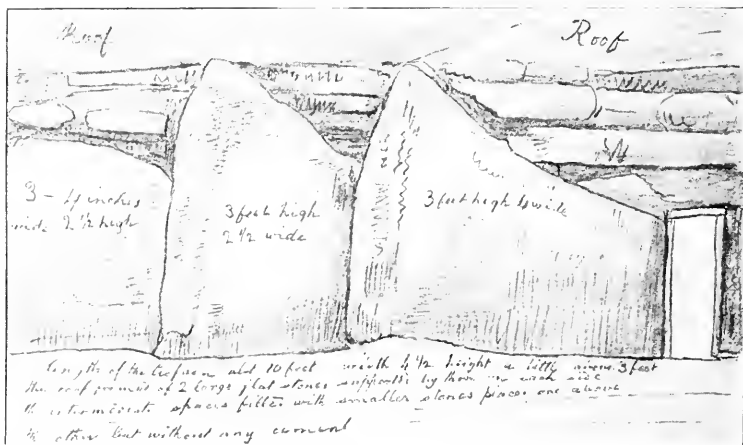 Roof
Roof
3 - 4 inches
wide 2 ½ high
3 feet high
2 ½ wide
3 feet high 4 wide
length of the abt 10 feet width 4 ½ height a little 3 feet
the roof of 2 large flat stones by them on each side
spaces filled with smaller stones placed one above
other but without any cement